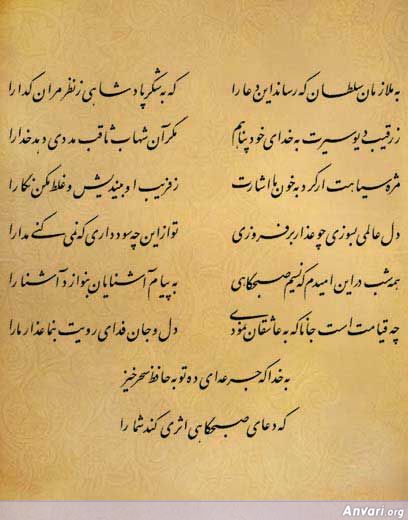 به ملازمان سلطان که رساند این دعا را که به شکر پادشاهی ز نظر مران گدا را
ز رقیب دیوسیرت به خدای خود پناهم مگر آن شهاب ثاقب مددی دهد خدا را
مژه سیاهت ار کرد به خون ما اشارت ز فریب او بیندیش و غلط مکن نگارا
دل عالمی بسوزی چو عذار برفروزی تو از این چه سود داری که نمی کنی مدارا
همه شب در این امیدم که نسیم صبحگاهی به پیام آشنایان بنوازد آشنا را
چه قیامت است جانا که به عاشقان نمودی دل و جان فدای رویت بنما عذار ما را
به خدا که جرعه ای ده تو به حافظ سحرخیز
که دعای صبحگاهی اثری کند شما را
Anvari.org